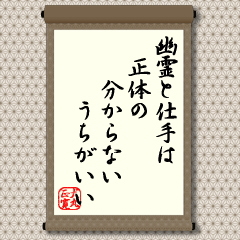 幽霊と仕手は
正体の
分からない
うちがいい